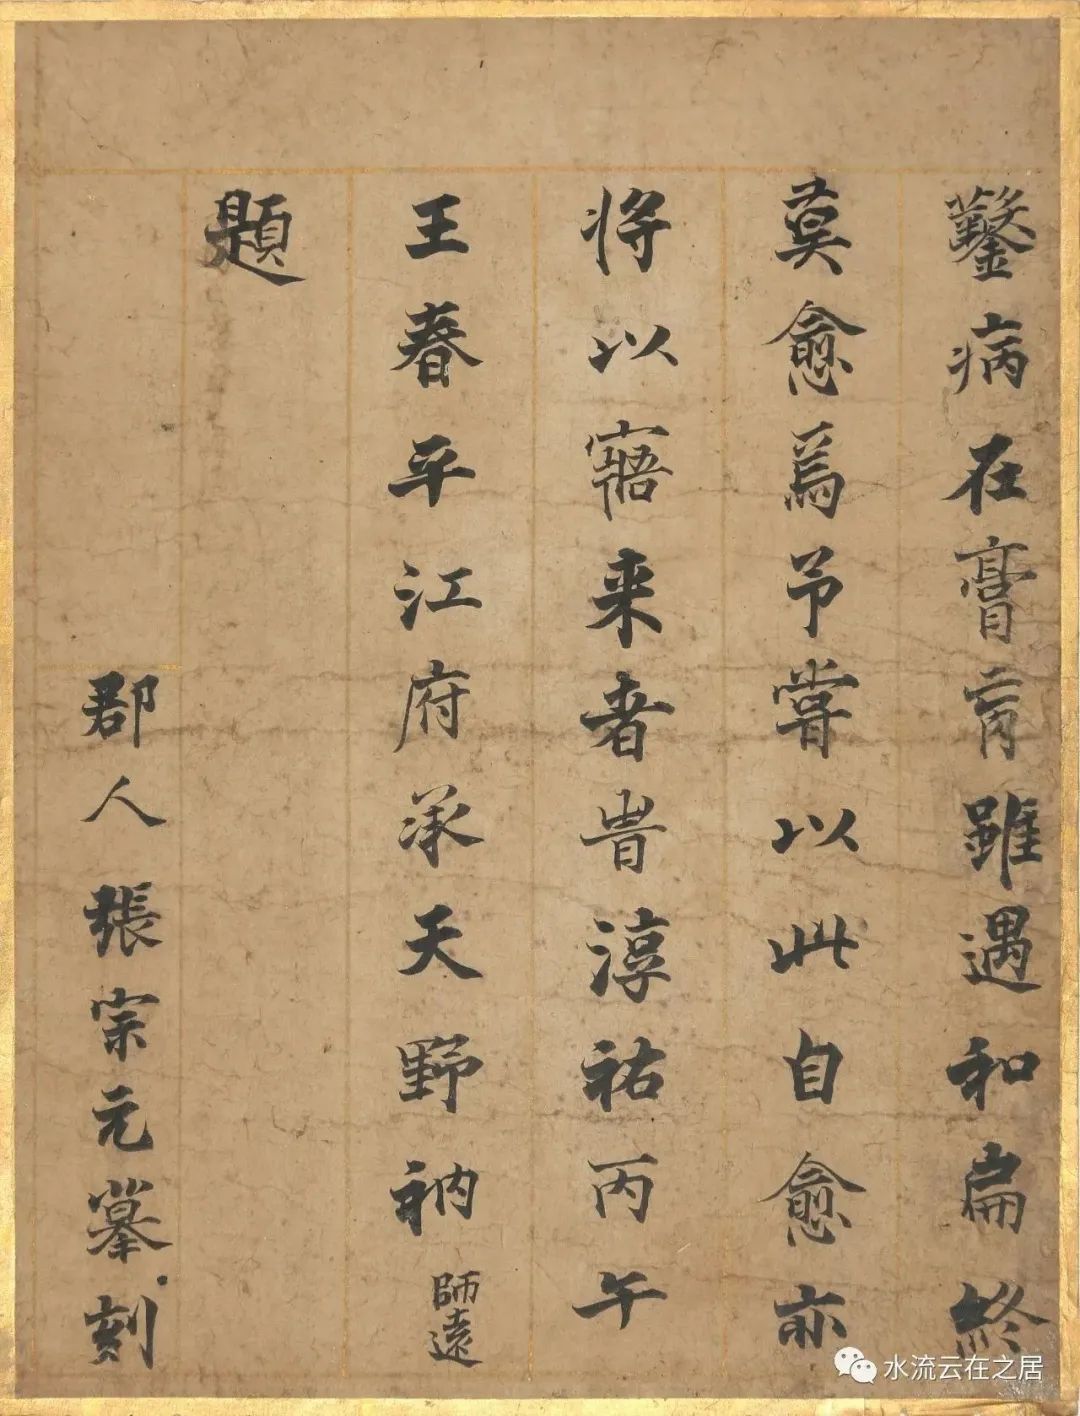 鑿病在膏肓雖遇和扁終
莫愈焉予嘗以此自愈亦
将以寤来者旹淳祐丙午
王春平江府承天野衲師遠
題
郡人張宗元摹刻
水流云在之居